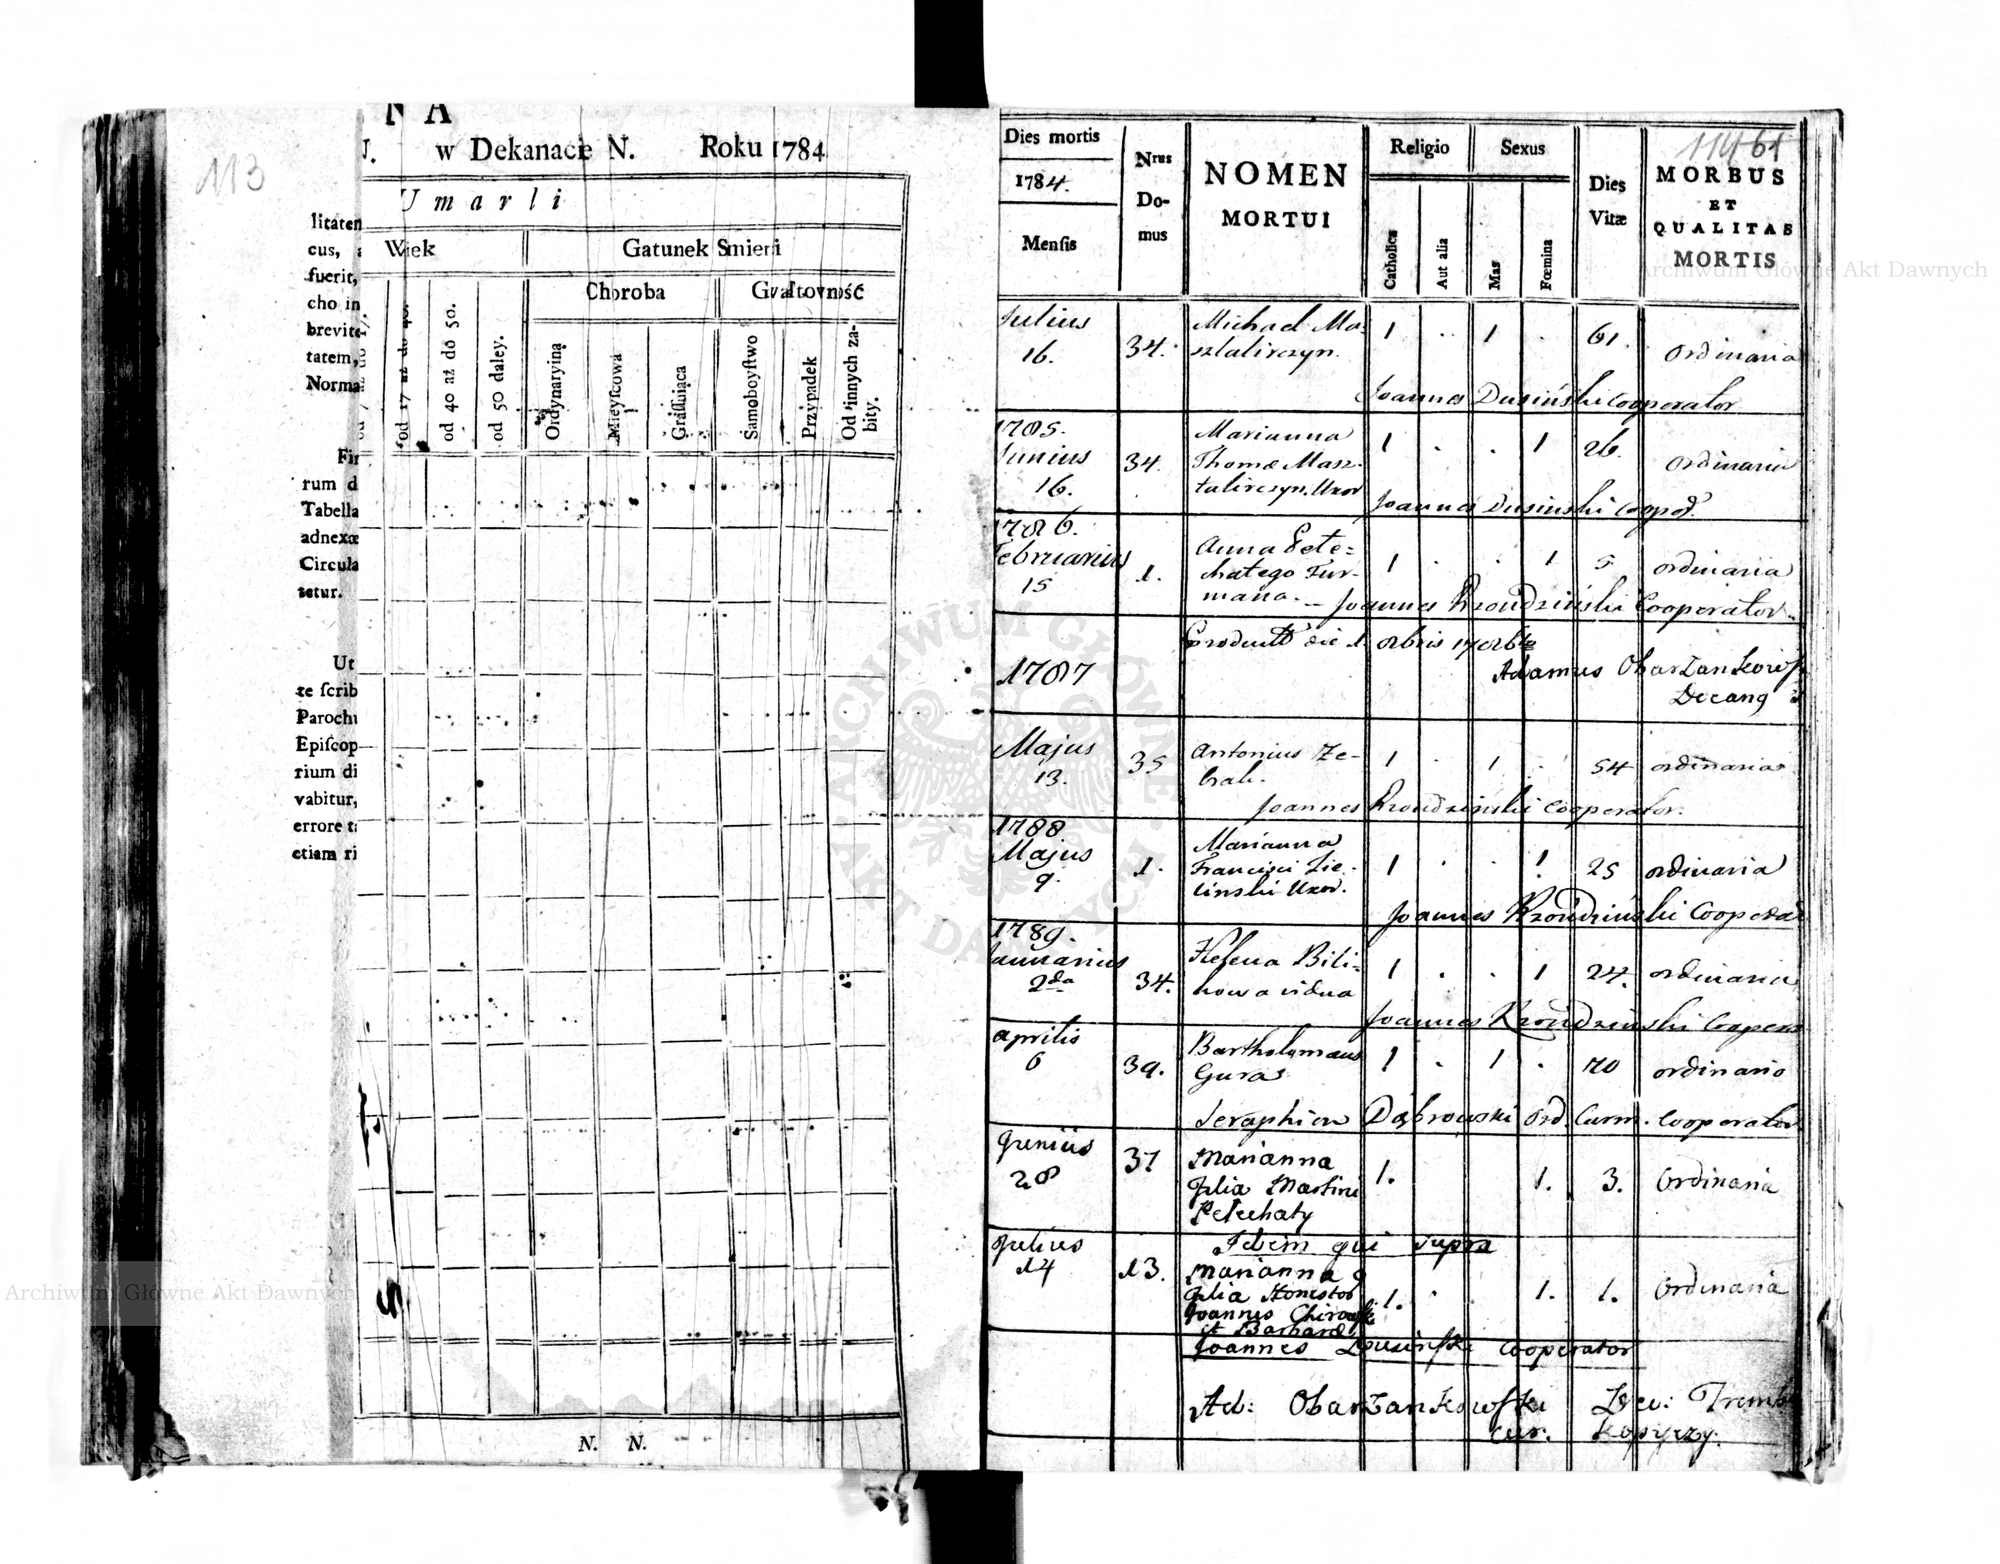 113
N A
N. w Dekanacie N. Roku 1784
Umarli
Wiek
Gatunek Smierci
Choroba
Gwałtowność
od 17 aż do 40.
od 40 aż do 50.
od 50 daley.
Ordynaryina
Mieyscowa
Grassuiąca
Samoboystwo
Przypadek
Od innych zabity.
litatem
cus,
fuerit,
cho in
brevite-
tatem,
Norma
Fir
rum d
Tabella
adnexæ
Circula
tetur.
Ut
te ſcrib
Parochu
Epiſcop
rium di
vabitur,
errore t
etiam ri
N. N.
114 61
Dies mortis
1784.
Menſis
Nrus
Do-
mus
NOMEN
MORTUI
Religio
Catholica
Aut alia
Sexus
Mas
Fœmina
Dies
Vitæ
MORBUS
ET
QUALITAS
MORTIS
Julius
16. 34. Michael Ma-
sztalirczyn. 1 . 1 . 61. ordinaria
Joannes Dusiński Cooperator
1785.
Junius
16. 34. Marianna
Thomæ Masz-
talirczyn. Uxor 1 . . 1 26. ordinaria
Joannes Dusinski
1786.
Februarius
15 1. Anna Pete-
chatego Fur-
mana. 1 . . 1 5 ordinaria
Joannes Cooperator.
1787
die 1
Adamus
Decanq
Majus
13. 35 Antonius Ze-
brak. 1 . 1 . 54 ordinaria
Joannes Cooperator.
1788
Majus
9. 1. Marianna
Francisci Zie-
linski Uxor. 1 . . 1 25 ordinaria
Joannes
1789.
Januarius
2da 34. Helena Bili-
nowa vidua 1 . . 1 24. ordinaria
Joannes
Aprilis
6 39. Bartholomæus
Guras 1 . 1 . 70 ordinario
Seraphion Dąbrowski Ord. Carm. Cooperator
Junius
28 37 Marianna
Filia Martini
Petechaty 1. 1. 3. Ordinaria
Idem qui supra
Julius
14 13. Marianna
Filia
Joannis
et 1. . 1. 1. Ordinaria
Joannes Dusinski Cooperator
Ad: Obarzankowski Dec: Tremb
Cur. Kopyczy.
Archiwum Główne Akt Dawnych
Archiwum Główne Akt Dawnych
ARCHIWUM GŁÓWNE AKT DAWNYCH